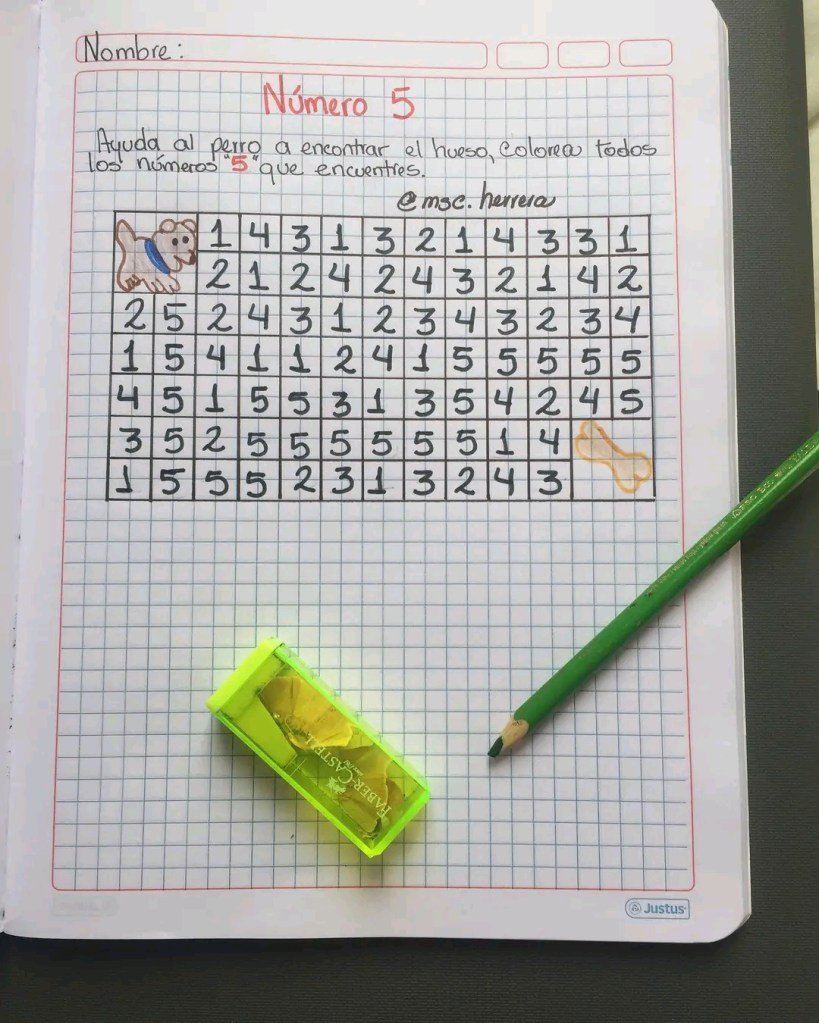 Nombre:
Número 5
Ayuda al perro a encontrar el hueso, Colorea todos
los números "5" que encuentres.
@msc.herrera
1 4 3 1 3 2 1 4 3 3 1
2 1 2 4 2 4 3 2 1 4 2
2 5 2 4 3 1 2 3 4 3 2 3 4
1 5 4 1 1 2 4 1 5 5 5 5 5
4 5 1 5 5 3 1 3 5 4 2 4 5
3 5 2 5 5 5 5 5 5 1 4
1 5 5 5 2 3 1 3 2 4 3
FABER-CASTELL
Justus